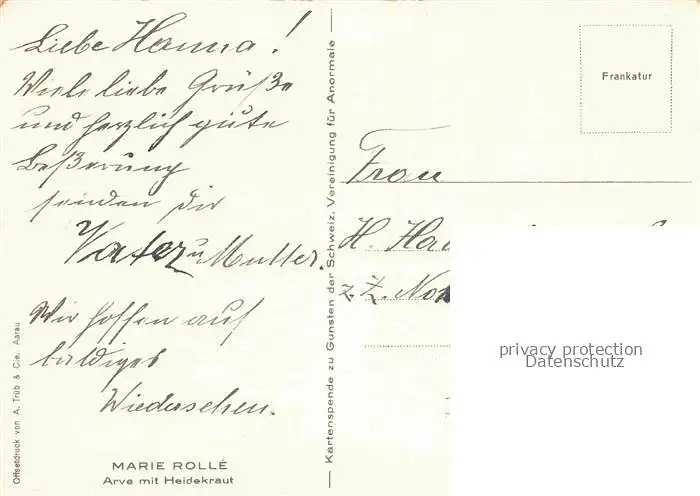 Liebe Hanna!
Viele liebe Grüße
und herzlich gute
Beßerung
senden dir
Vater u Mutter.
Wir hoffen auf
baldiges
Wiedersehen.
MARIE ROLLÉ
Arve mit Heidekraut
Offsetdruck von A. Trüb & Cie. Aarau
Kartenspende zu Gunsten der Schweiz. Vereinigung für Anormale
Frankatur
Frau
H.
z. Z.
privacy protection
Datenschutz